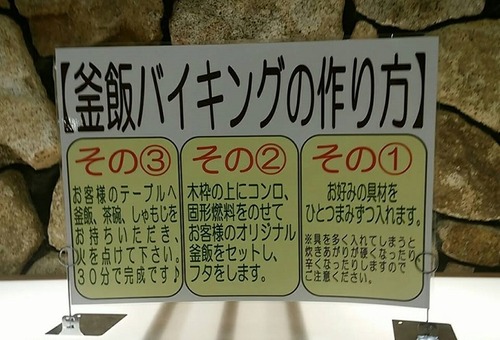 【釜飯バイキングの作り方】
その①
お好みの具材を
ひとつまみずつ入れます。
※具を多く入れてしまうと
炊きあがりが硬くなったり
辛くなったりしますので
ご注意ください。
その②
木枠の上にコンロ、
固形燃料をのせて
お客様のオリジナル
釜飯をセットし、
フタをします。
その③
お客様のテーブルへ
釜飯、茶碗、しゃもじを
お持ちいただき、
火を点けて下さい。
30分で完成です♪